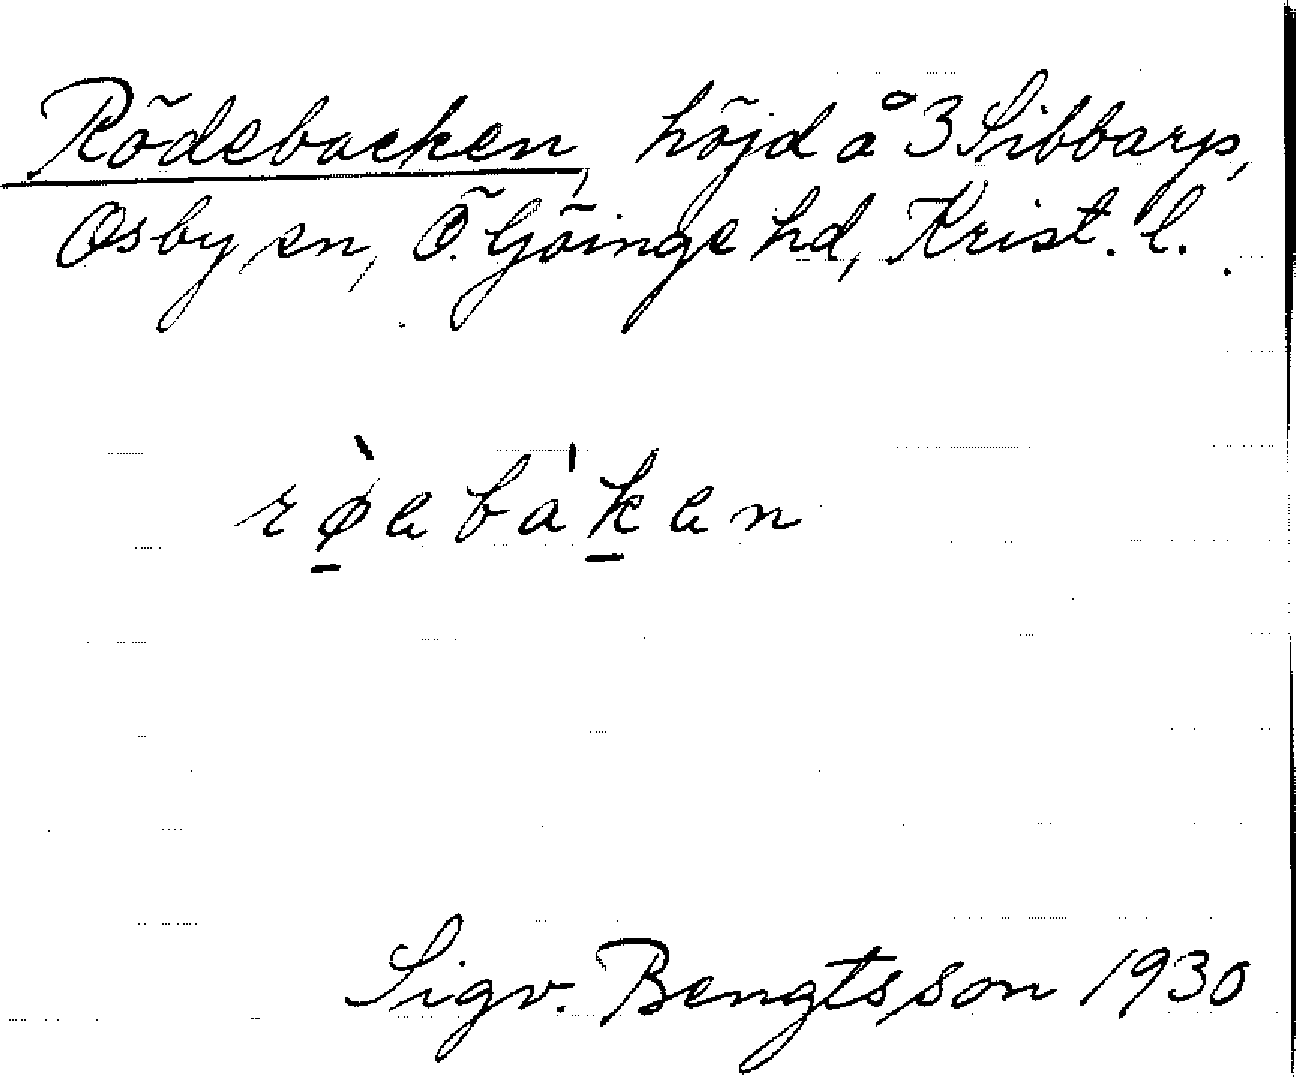 Rödebacken, höjd å 3 Sibbarp,
Osby sn, Ö. Göinge hd, Krist. l.
rø̠̀eba'k̠en
Sigv. Bengtsson 1930